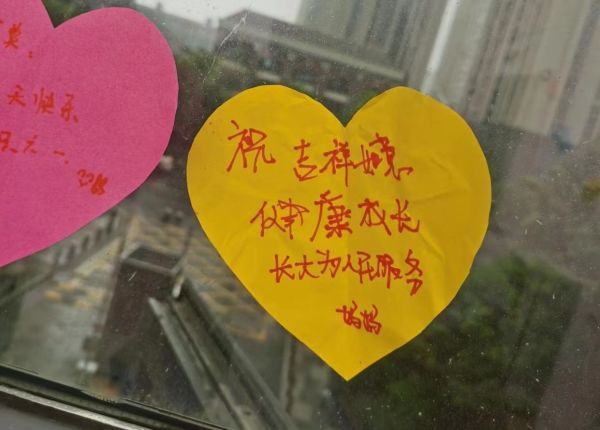 天快乐
六一
祝 吉祥
健康成长
长大为人民服务
妈妈